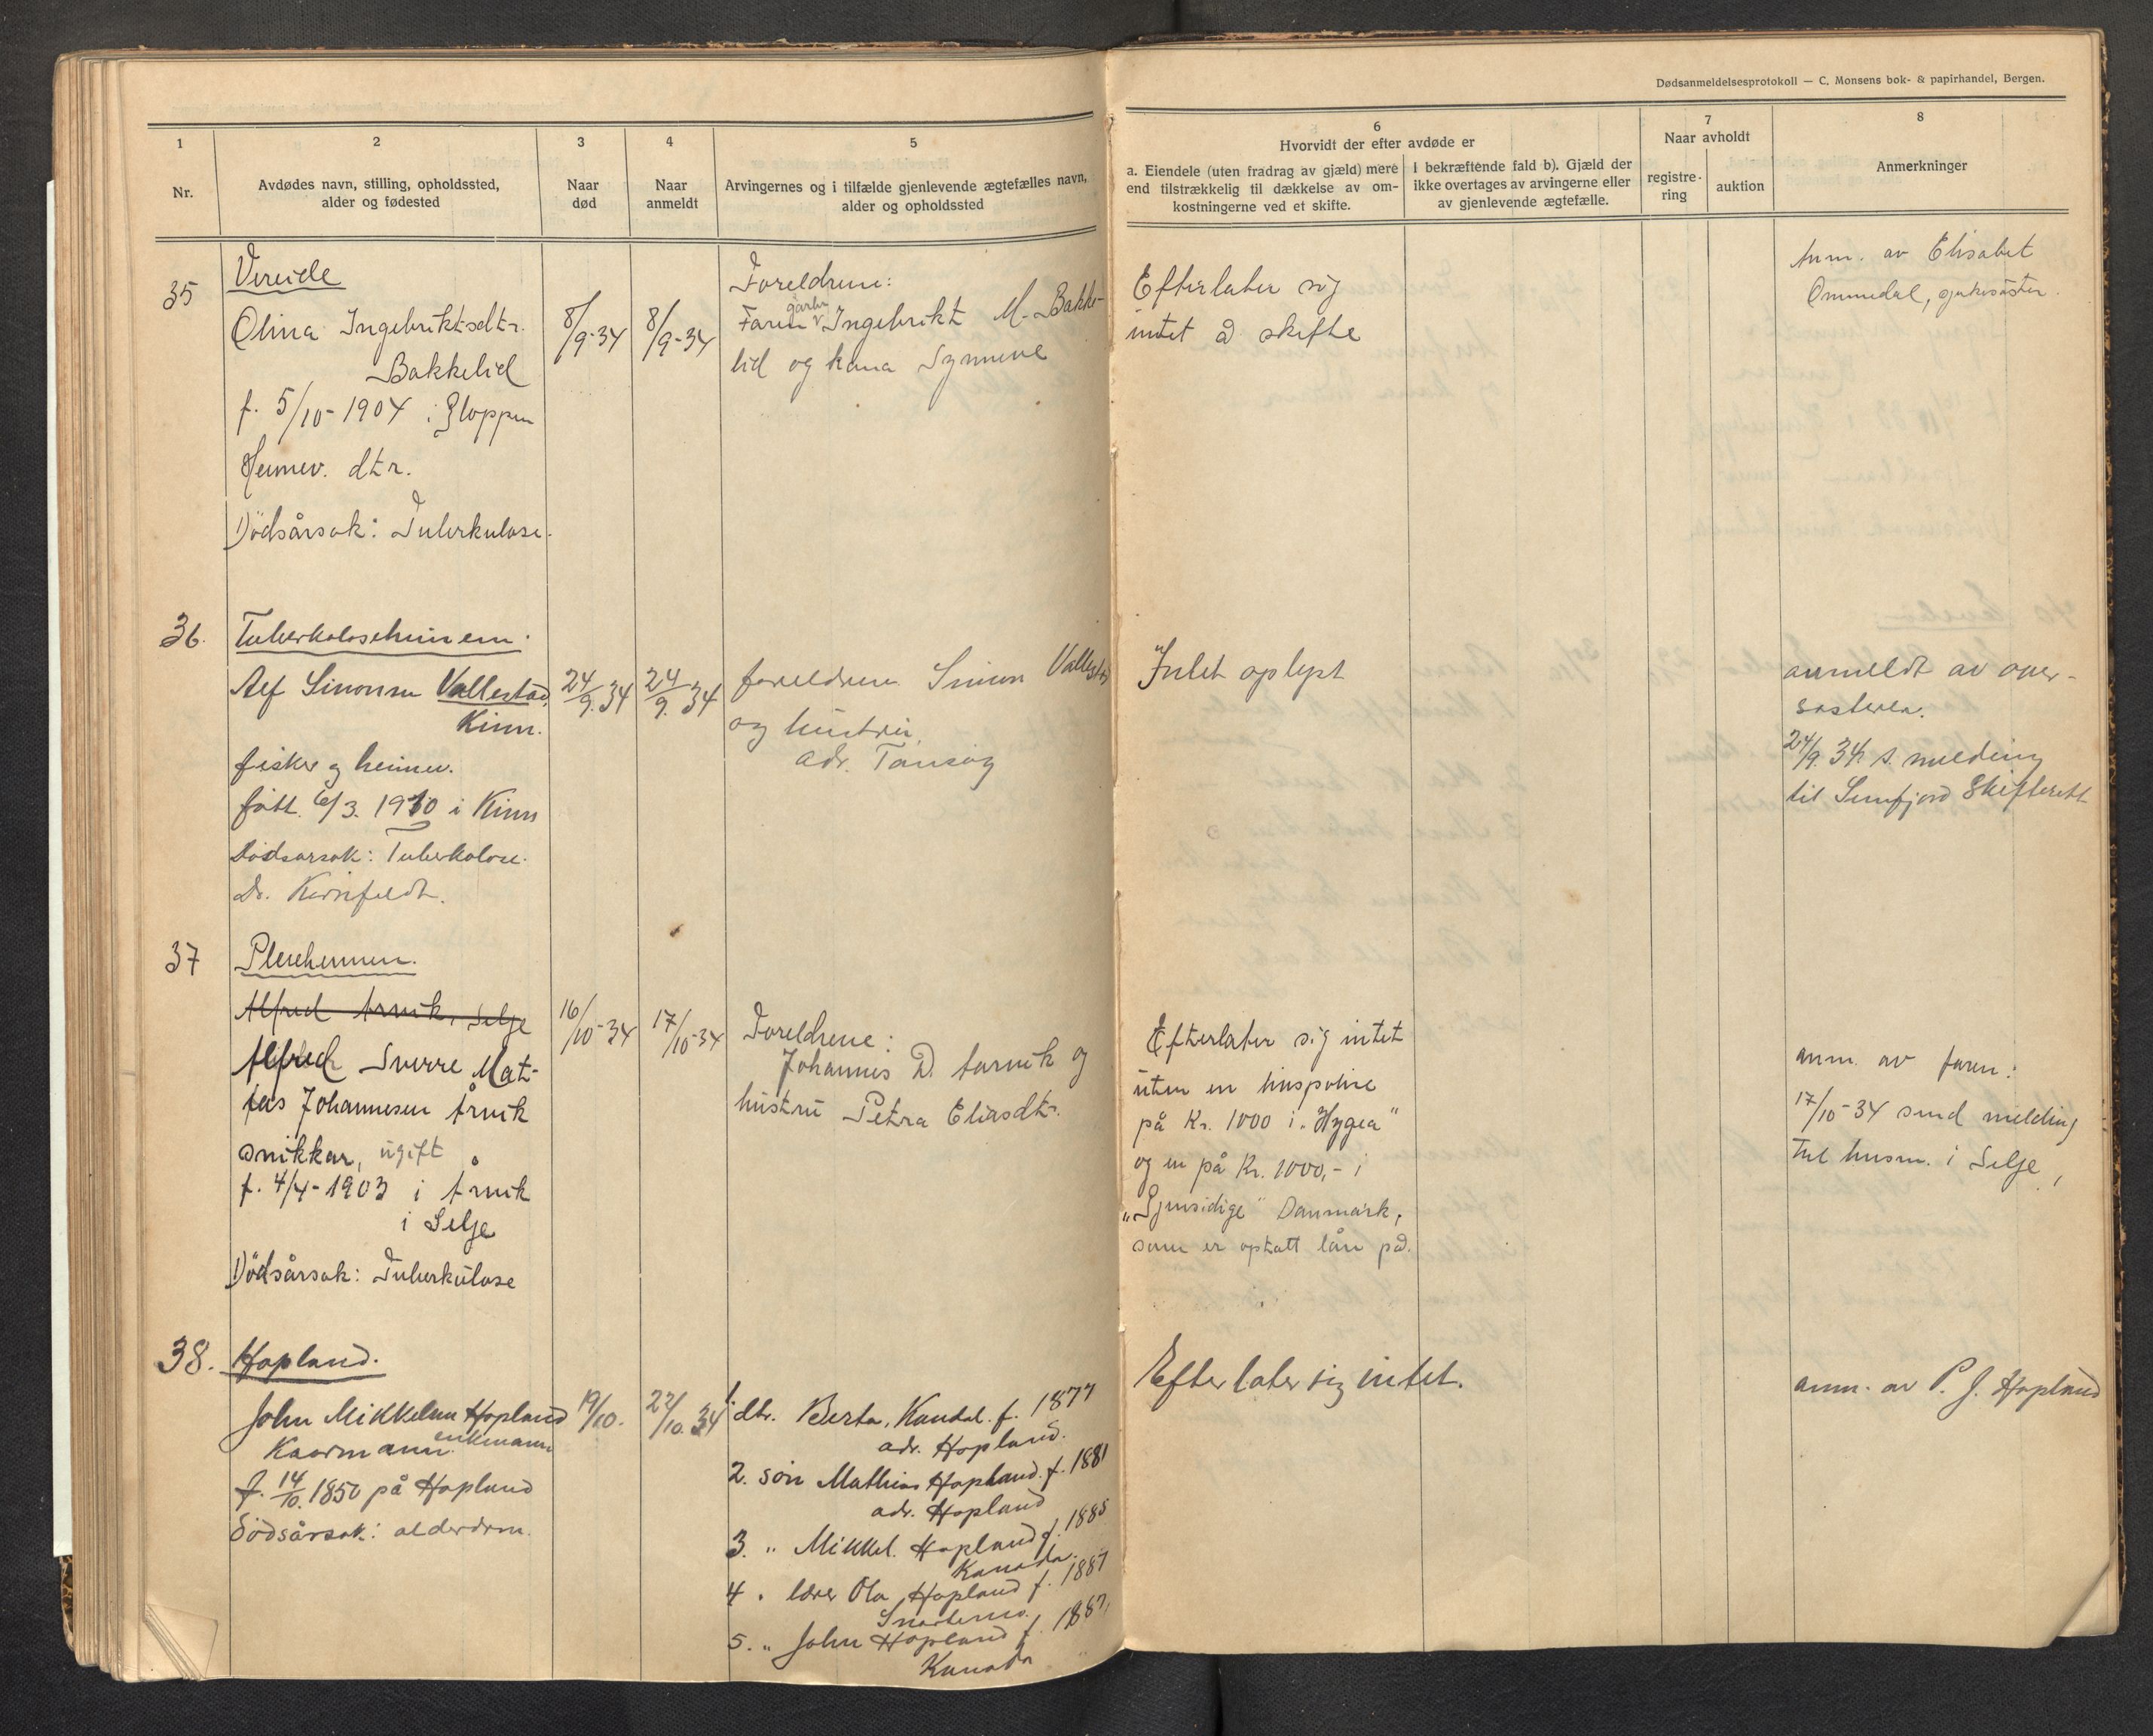 Dødsanmeldelsesprotokoll — C. Monsens bok- & papirhandel, Bergen.
1
Nr.
2
Avdødes navn, stilling, opholdssted,
alder og fødested
3
Naar
død
4
Naar
anmeldt
5
Arvingernes og i tilfælde gjenlevende ægtefælles navn,
alder og opholdssted
6
Hvorvidt der efter avdøde er
a. Eiendele (uten fradrag av gjæld) mere
end tilstrækkelig til dækkelse av om-
kostningerne ved et skifte.
I bekræftende fald b). Gjæld der
ikke overtages av arvingerne eller
av gjenlevende ægtefælle.
7
Naar avholdt
registre-
ring
auktion
8
Anmerkninger
35
Vereide
Olina Ingebriktsdtr.
Bakkelid
f. 5/10-1904 i Gloppen
Heimev. dtr.
Dödsårsak: Tuberkulose.
8/9-34
8/9-34
Foreldrene:
Faren garbr. Ingebrikt M. Bakke-
lid og kona Synneve
Efterlater sig
intet å skifte
Anm. av Elisabet
Ommedal, sjukesöster.
36.
Tuberkuloseheimen.
Alf Simonsen Vallestad,
Kinn.
fisker og heimev.
født. 6/3. 1910 i Kinn
Dødsarsak: Tuberkolose.
Dr. Kornfeldt.
24/9.34
24/9.34
foreldrene Simon Vallestad
og hustru.
adr. Tansøy
Intet oplyst
anmeldt av over-
søsteren.
24/9.34 s. melding
til Sunnfjord Skifterett
37
Pleieheimen.
Alfred Årvik, Selje
Alfred Sverre Mat-
ias Johannesen Årvik
snikkar, ugift
f. 4/4-1903 i Årvik
i Selje
Dödsårsak: Tuberkulose
16/10-34
17/10-34
Foreldrene:
Johannes D. Aarvik og
hustru Petra Eliasdtr.
Efterlater sig intet
uten en livspolise
på Kr. 1000 i „Hygea"
og en på Kr. 1000,- i
„Gjensidige" Danmark,
som er optatt lån på.
anm. av faren:
17/10-34 send melding
til lensm. i Selje
38.
Hopland.
John Mikkelsen Hopland
Kaarmann enkmann
f. 14/10.1850 på Hopland
Dödsårsak: alderdom.
19/10.
22/10.34
1. dtr. Berta, Kandal. f. 1877
adr. Hopland.
2. søn Mathias Hopland. f. 1881
adr. Hopland
3. " Mikkel. Hopland f. 1885
Kanada.
4. lærer Ola Hopland f. 1887
5. " John Hopland f. 1887
Kanada
Efterlater sig intet.
anm. av P. J. Hopland